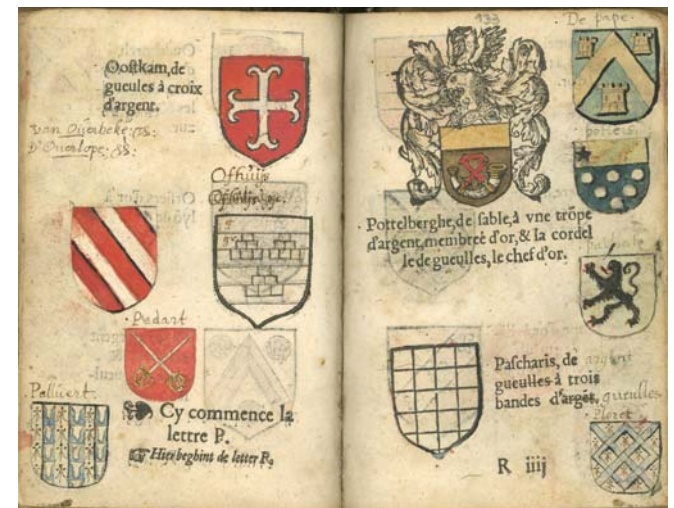 Oostkam, de
gueules à croix
d'argent.
van Oijerbeke
Ofhuijs
Pedart
Pollivert.
Cy commence la
lettre P.
Hier beghint de letter P.
133
De pape.
potters
Pottelberghe, de sable, à vne trõpe
d'argent, membreé d'or, & la cordel
le de gueulles, le chef d'or.
Pascharis, de argent
gueulles à trois
bandes d'argẽt. gueulles
Ploret
R iiij